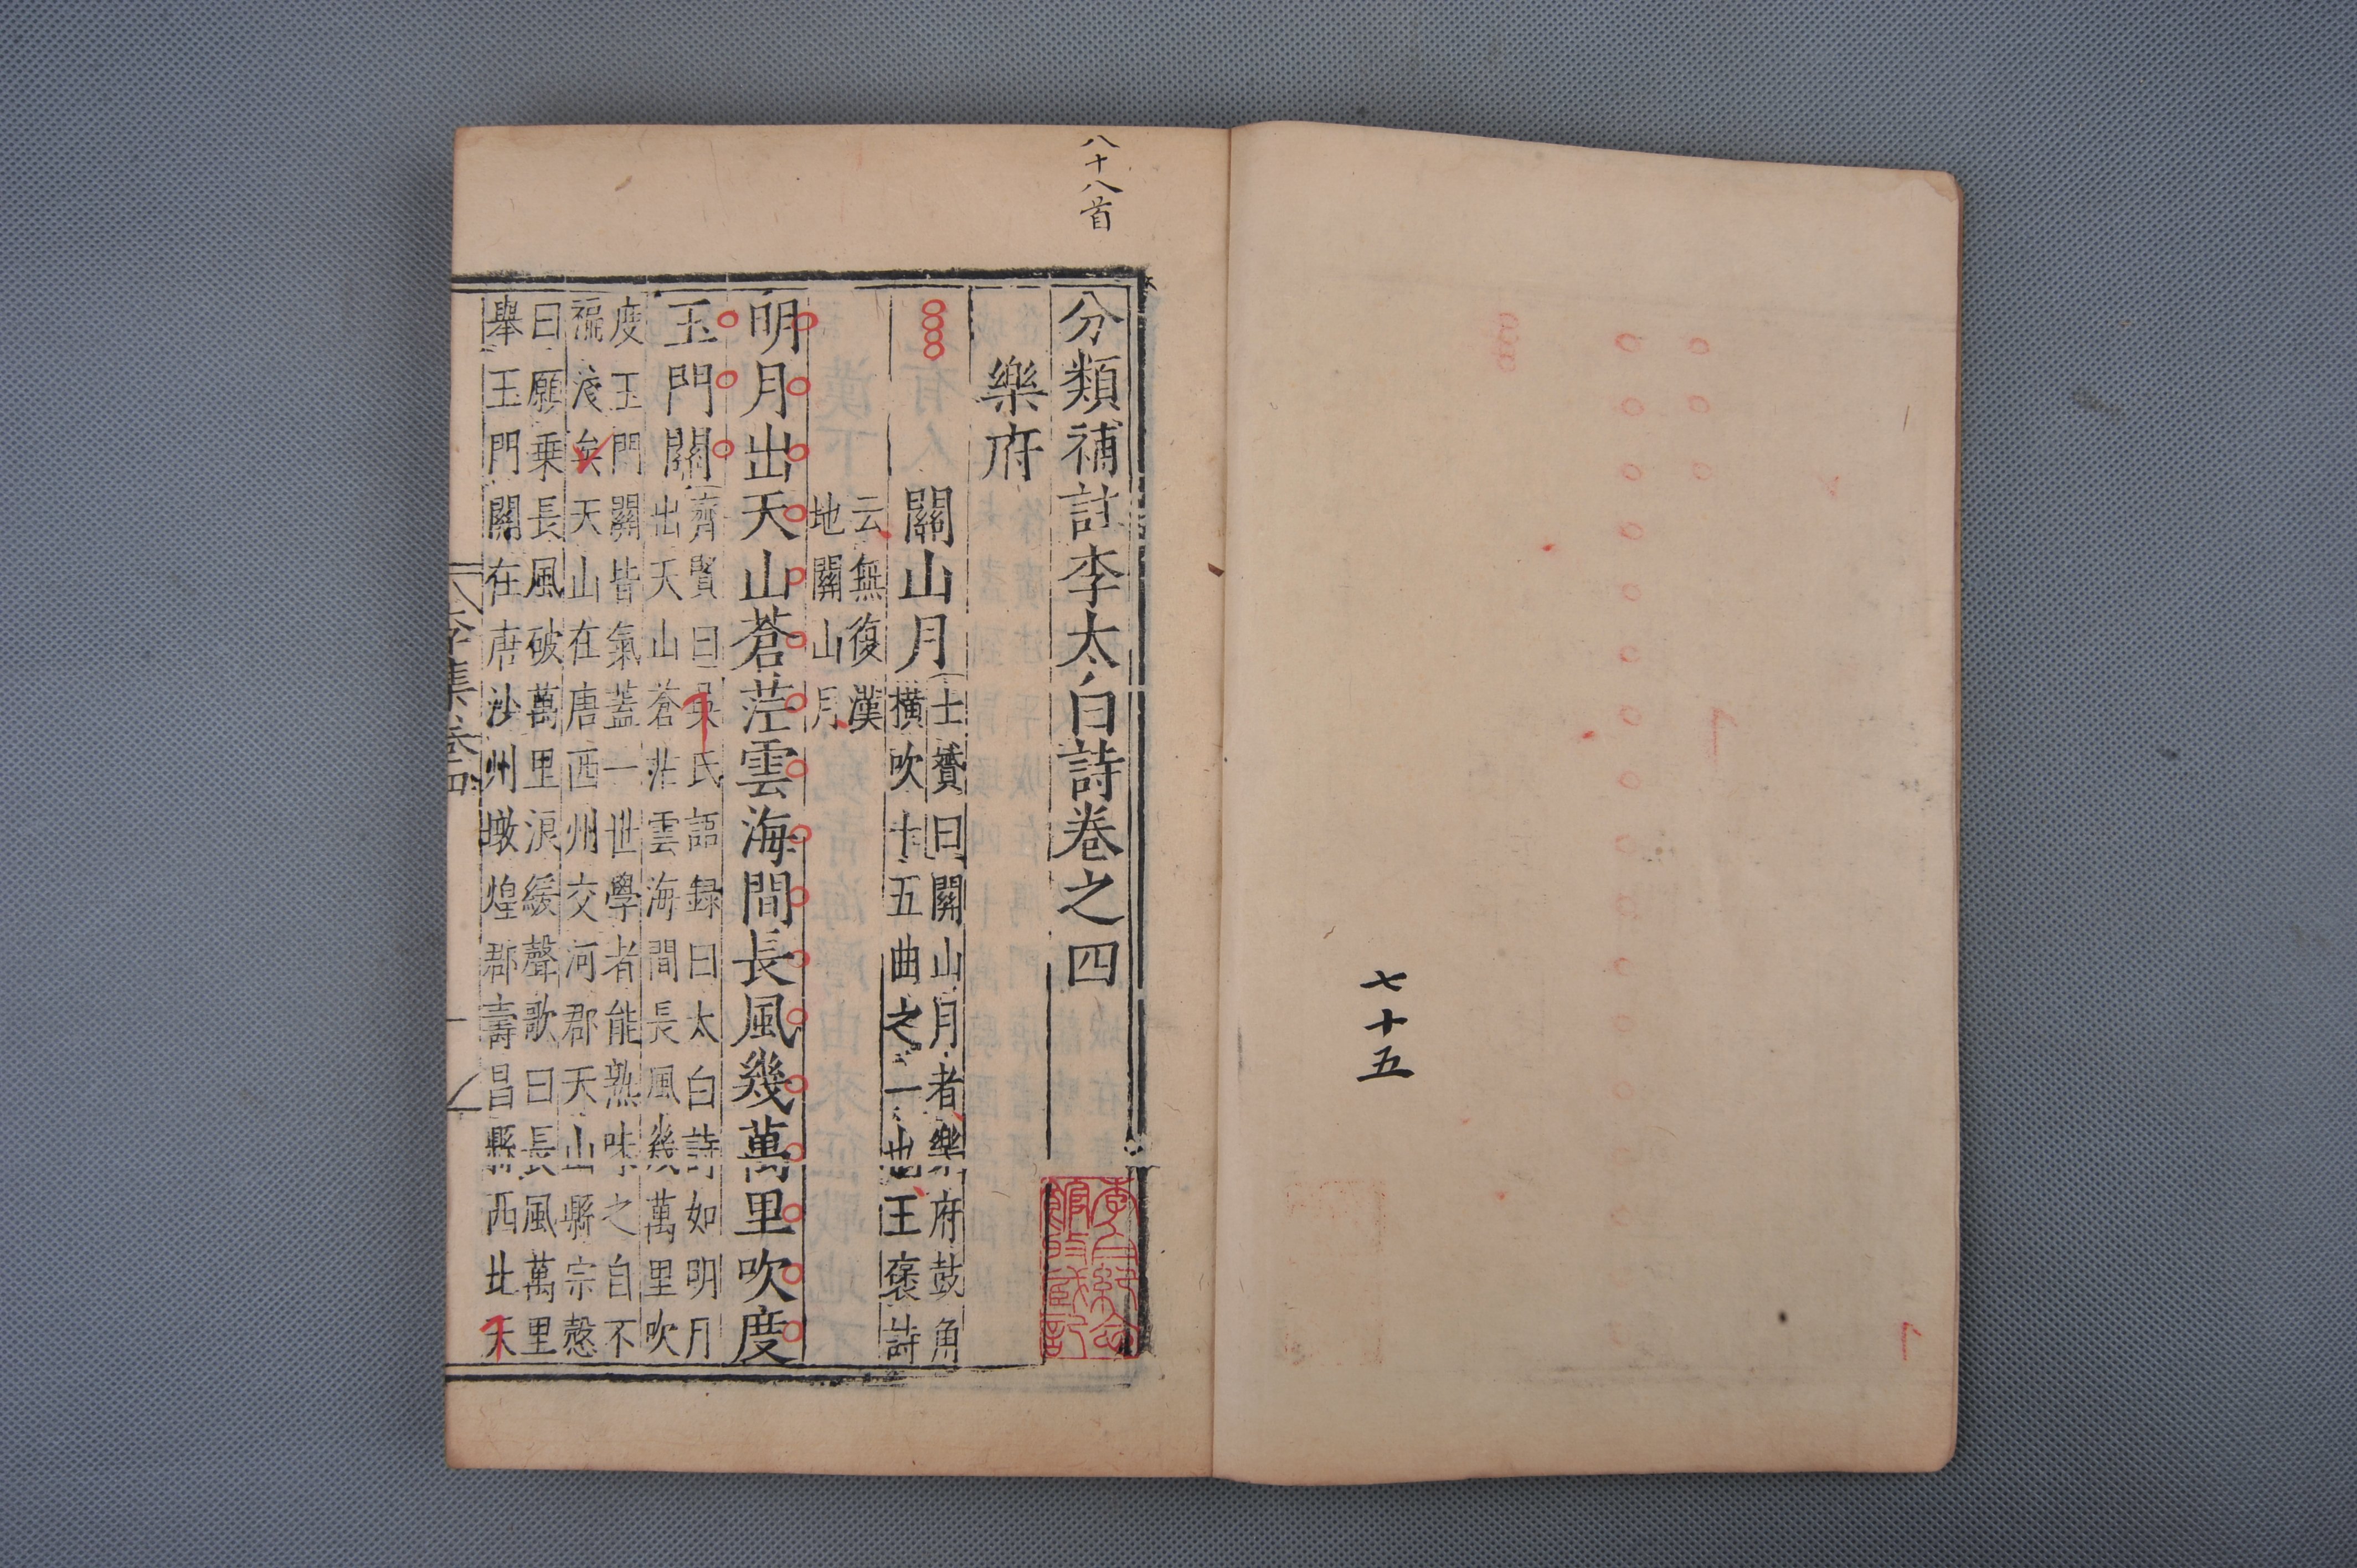 七十五
八十八首
分類補註李太白詩卷之四
樂府
關山月
士贇曰關山月者樂府鼓角
橫吹十五曲之一也王褒詩
云無復漢
地關山月
明月出天山蒼茫雲海間長風幾萬里吹度
玉門關
齊賢曰吳氏語録曰太白詩如明月
出天山蒼茫雲海間長風幾萬里吹
度玉門關皆氣蓋一世學者能熟味之自不
褊淺矣天山在唐西州交河郡天山縣宗慤
曰願乗長風破萬里浪緩聲歌曰長風萬里
舉玉門關在唐沙州燉煌郡壽昌縣西北天
李集卷四